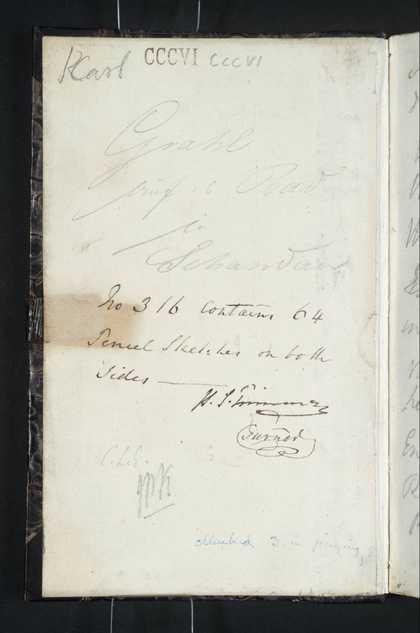 Karl CCCVI CCCVI
Grahl
Schandau
No 316 Contains 64
Pencil Sketches on both
Sides —
H. S. Trimmer
Turner
C.L.E.
JPK
3 in